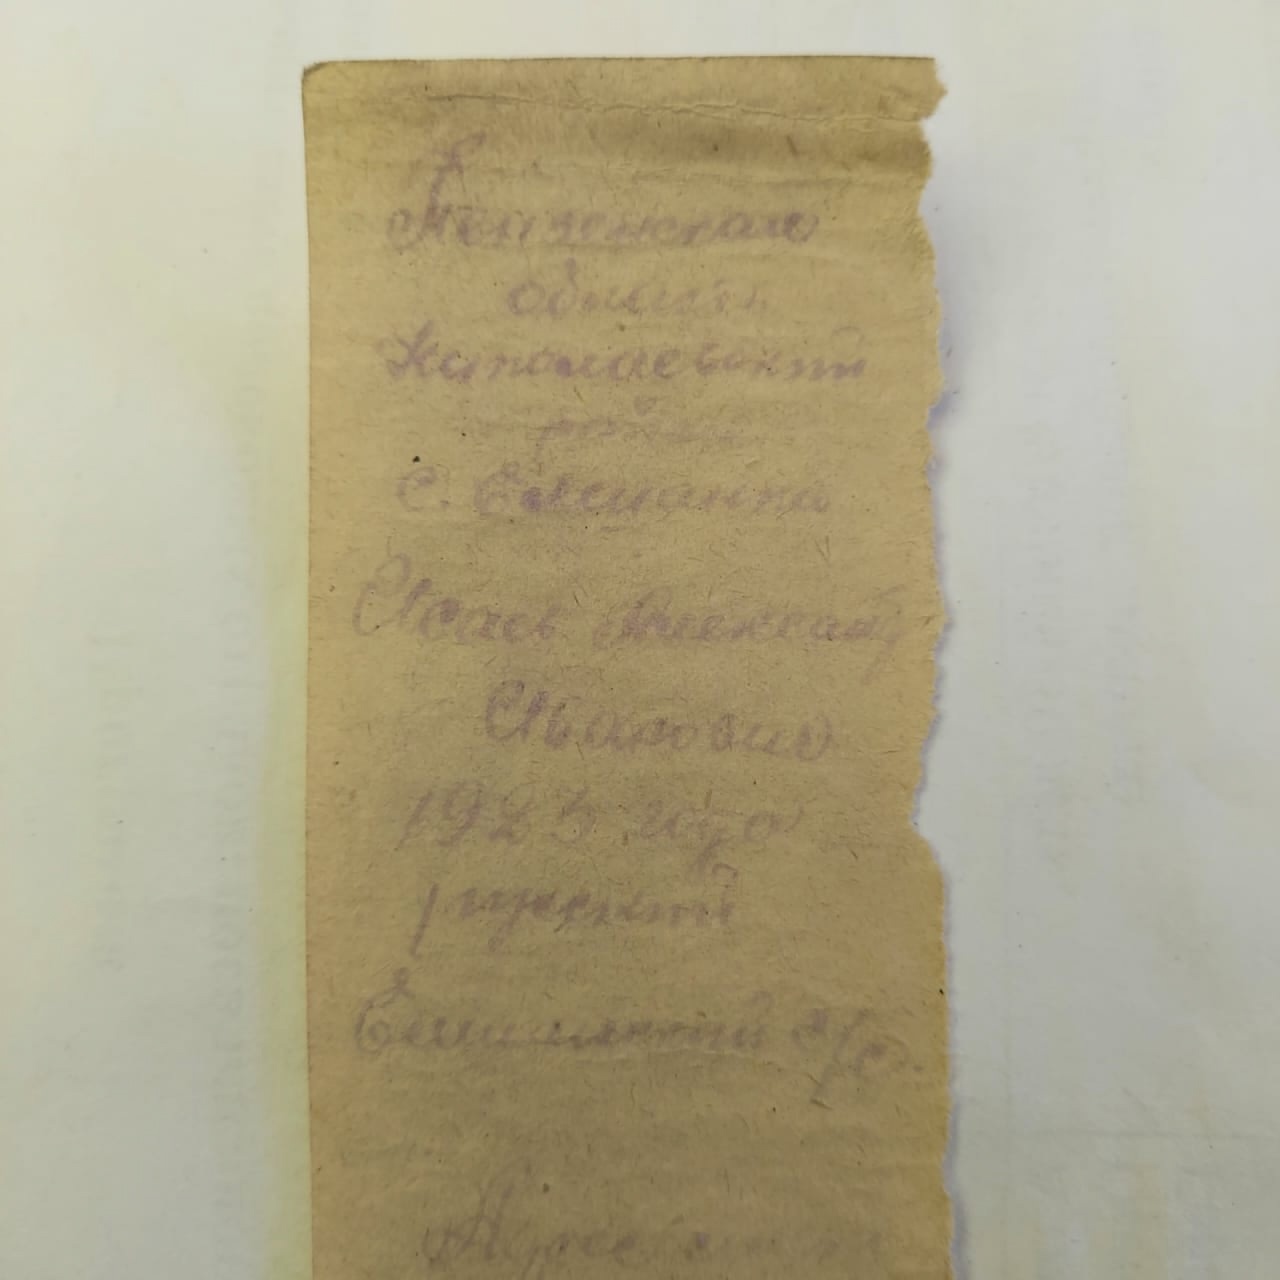 Пензенская
область
Николаевский
район
с. Елшанка
Исаев Александ
Иванович
1923 года
русский
Елшанский с/с.